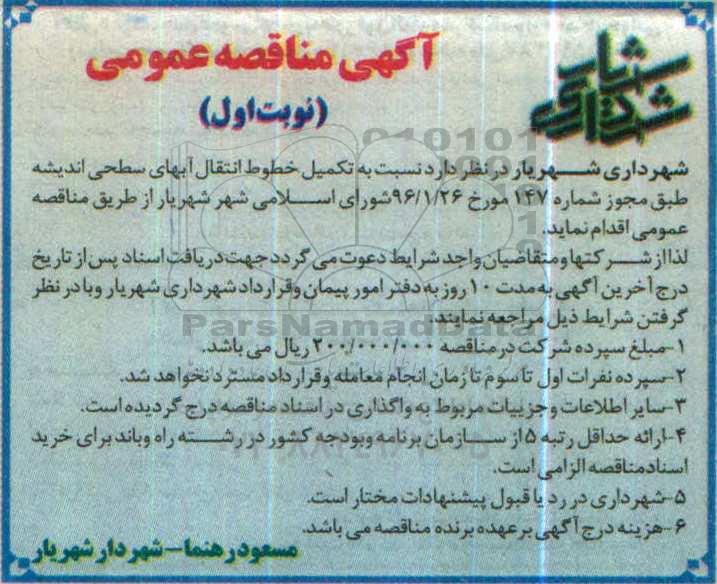 شهرداری شهریار
آگهی مناقصه عمومی
(نوبت اول)
شهرداری شهریار در نظر دارد نسبت به تکمیل خطوط انتقال آبهای سطحی اندیشه
طبق مجوز شماره ۱۴۷ مورخ ۹۶/۱/۲۶ شورای اسلامی شهر شهریار از طریق مناقصه
عمومی اقدام نماید.
لذا از شرکتها و متقاضیان واجد شرایط دعوت می گردد جهت دریافت اسناد پس از تاریخ
درج آخرین آگهی به مدت ۱۰ روز به دفتر امور پیمان و قرارداد شهرداری شهریار و با در نظر
گرفتن شرایط ذیل مراجعه نمایند:
ParsNamadData
۱-مبلغ سپرده شرکت در مناقصه ۲۰۰/۰۰۰/۰۰۰ ریال می باشد.
۲-سپرده نفرات اول تا سوم تا زمان انجام معامله و قرارداد مسترد نخواهد شد.
۳-سایر اطلاعات و جزییات مربوط به واگذاری در اسناد مناقصه درج گردیده است.
۴-ارائه حداقل رتبه ۵ از سازمان برنامه و بودجه کشور در رشته راه و باند برای خرید
اسناد مناقصه الزامی است.
۵-شهرداری در رد یا قبول پیشنهادات مختار است.
۶-هزینه درج آگهی بر عهده برنده مناقصه می باشد.
مسعود رهنما-شهردار شهریار